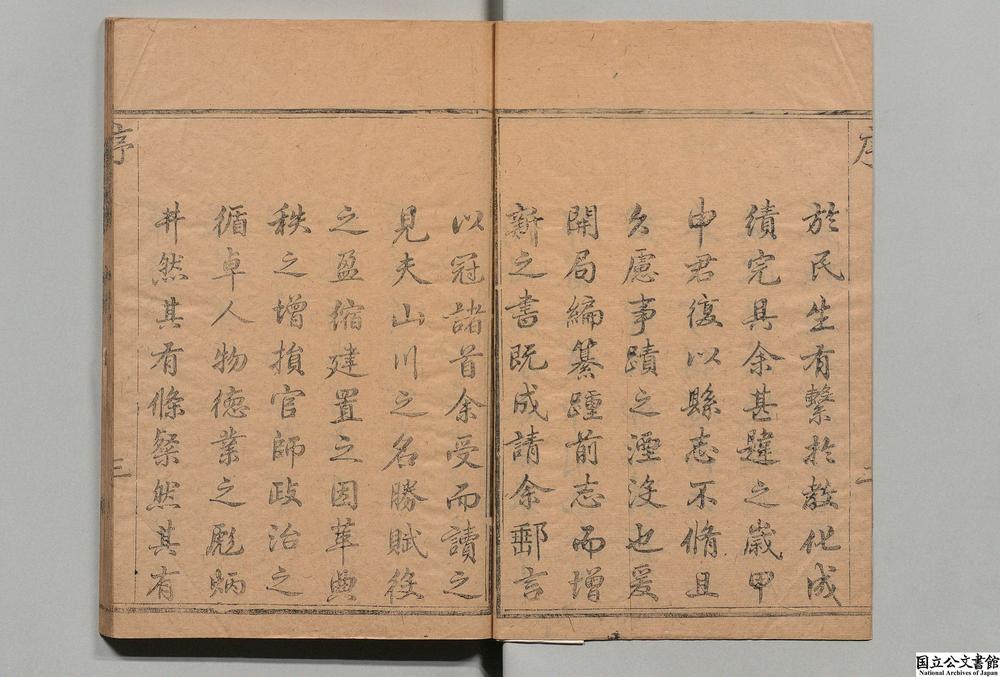 於民生有繫於教化成
績完具余甚韙之歲甲
申君復以縣志不脩且
久慮事蹟之湮没也爰
開局編纂踵前志而增
新之書既成請余鄄言
以冠諸首余受而讀之
見夫山川之名勝賦役
之盈縮建置之因革典
秩之增損官師政治之
循卓人物德業之彪炳
井然其有條粲然其有
序
二
序
三
国立公文書館
National Archives of Japan